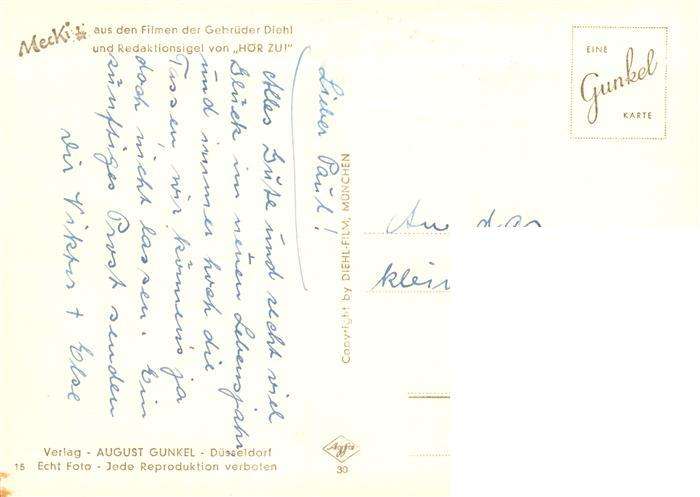 Mecki
aus den Filmen der Gebrüder Diehl
und Redaktionsigel von „HÖR ZU!"
Lieber Paul!
Alles Gute und recht viel
Glück im neuen Lebensjahr
und immer hoch die
Tassen, wir können's ja
doch nicht lassen. Ein
zünftiges Prost senden
Dir Viktor + Else
Copyright by DIEHL-FILM, MÜNCHEN
EINE
Gunkel
KARTE
An das
klein
Verlag - AUGUST GUNKEL - Düsseldorf
15 Echt Foto - Jede Reproduktion verboten
Agfa
30